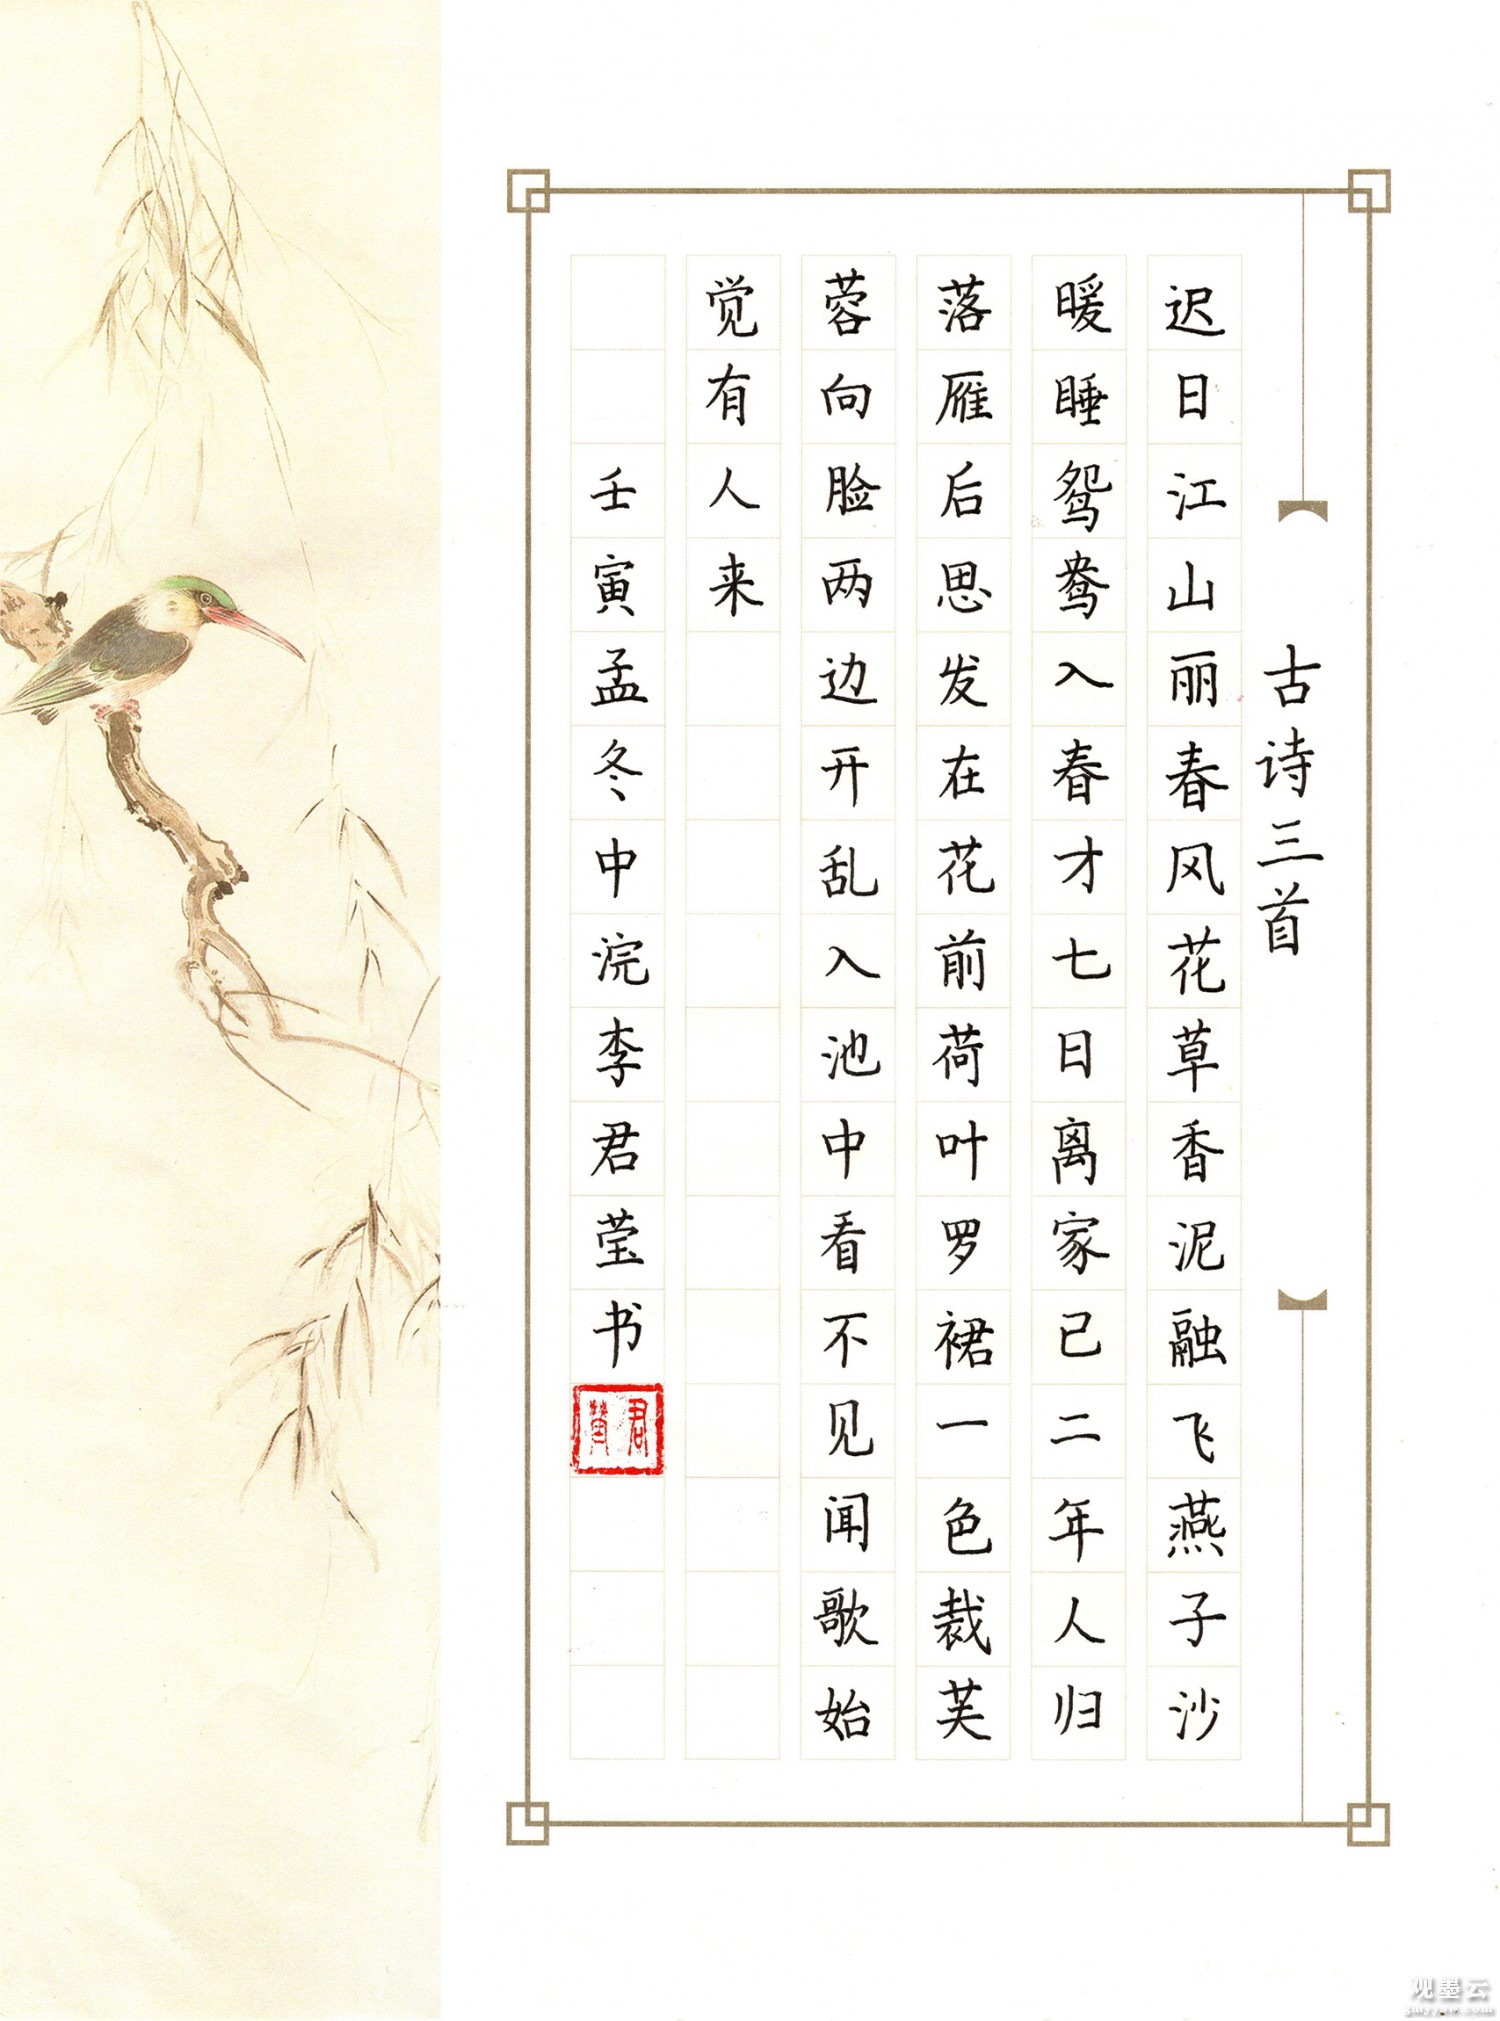 古诗三首
迟日江山丽春风花草香泥融飞燕子沙
暖睡鸳鸯入春才七日离家已二年人归
落雁后思发在花前荷叶罗裙一色裁芙
蓉向脸两边开乱入池中看不见闻歌始
觉有人来
壬寅孟冬中浣李君莹书
君莹
观墨云
gmyyun.com